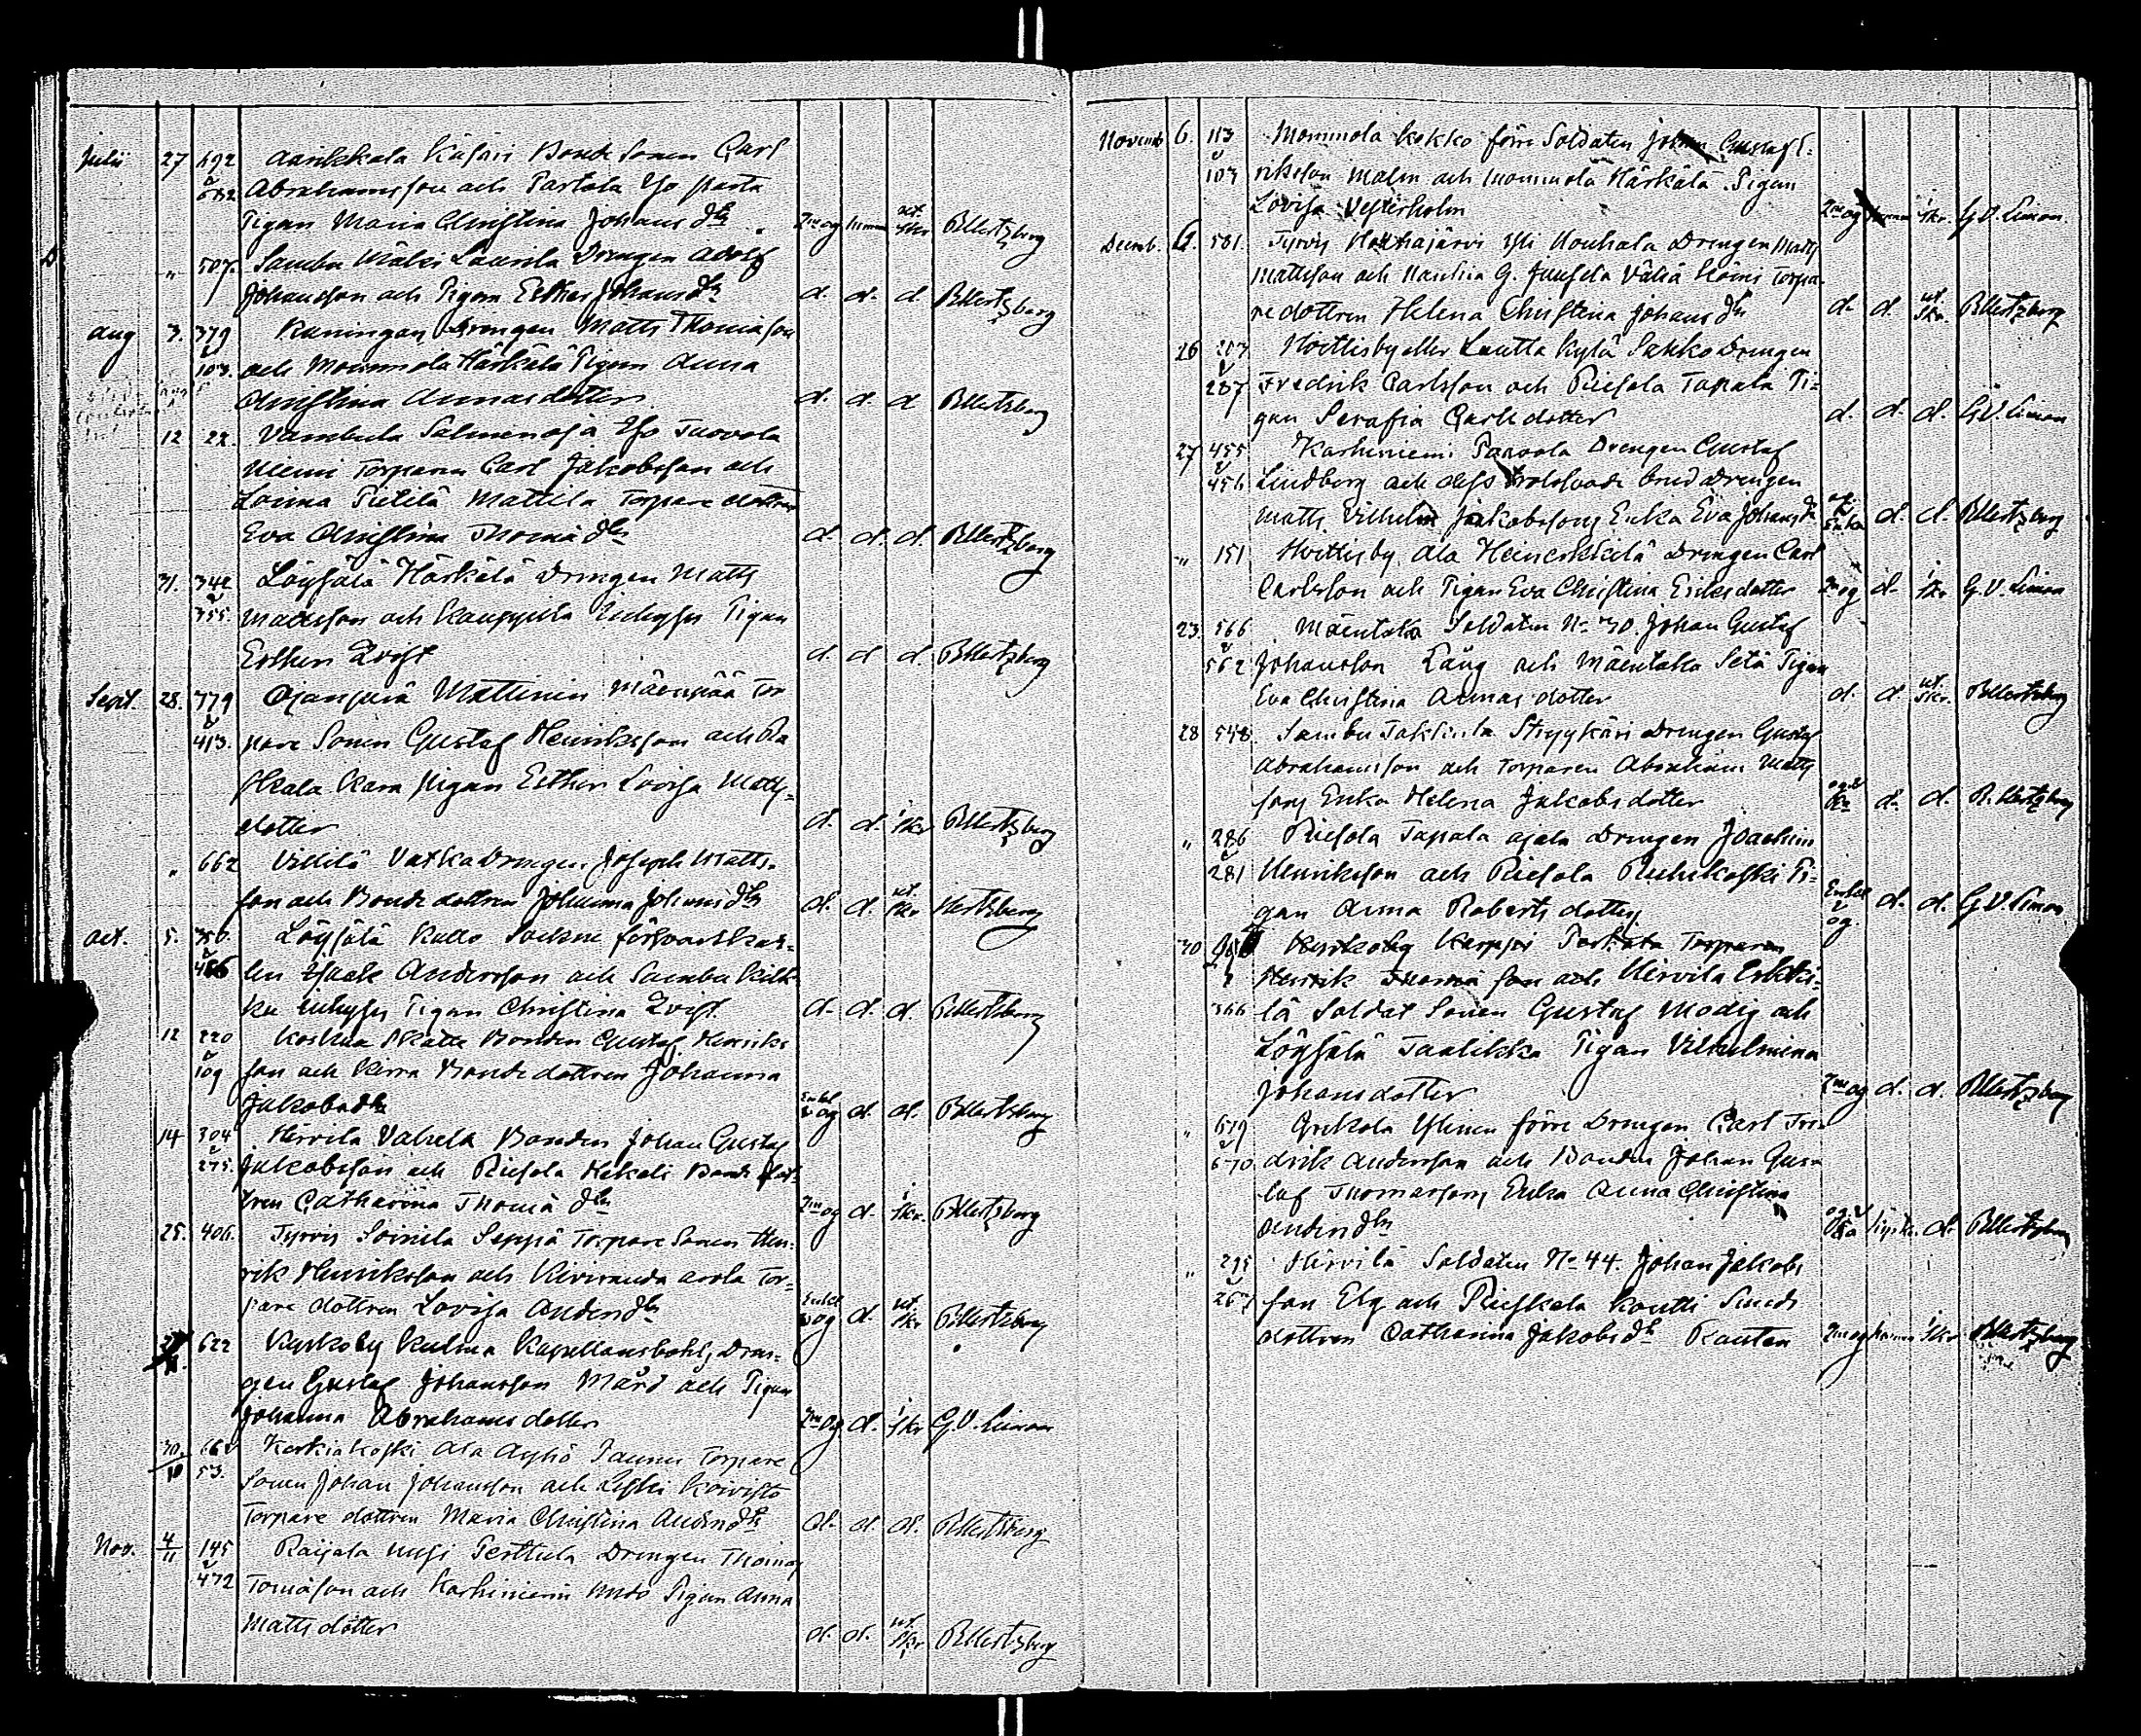 Julii 27 692 Aarikkala Käsäri Bonde Sonen Carl
Abrahamsson och Tartola
Pigan Maria Christina Johans dtr 2ne og hemma ut. skr. BHertzberg
" 507. Sambu Mälvi Laurila Drengen Adolf
Johansson och Pigan Esther Johans dtr d. d. d. BHertzberg
Aug 3. 379 Kuningan Drengen Matts Thomasson
103. och Mommola Härkälä Pigan Anna
Christina Annas dotter d. d. d. BHertzberg
12 22. Vambula Salmenoja
Niemi Torparen Carl Jakobsson och
Loima Pietilä Mattila Torpare dottren
Eva Christina Thomä dtr d. d. d. BHertzberg
31. 342 Löysälä Härkälä Drengen Matts
355. Mattsson och Kauppila Inhyses Pigan
Esther Qvist d. d. d. BHertzberg
Sept. 28. 779 Ojanperä Mattinen Mäenpää Tor
413. pare Sonen Gustaf Henriksson och Ra
skala Kara pigan Esther Lovisa Matts-
dotter d. d. i skr BHertzberg
" 662 Villilä Vatka Drengen Joseph Matts-
son och Bonde dottren Johanna Johans dtr d. d. ut. skr Hertzberg
Oct. 5. 350. Löysälä Kallo Sockne försvarskar-
len Isack Andersson och Sambu Kilk
ku Inhyses Pigan Christina Qvist d. d. d. BHertzberg
12 220 Koskua Skatta Bonden Gustaf Henriks
109 son och Kirra Bonde dottren Johanna
Jakobs dtr Enkel v og d. d. BHertzberg
14 304 Hirvilä Valsela Bonden Johan Gustaf
275. Jakobsson och Riesola Kekoli Bonde dot
tren Catharina Thomä dtr 2ne og d. i skr. BHertzberg
25. 406. Tyrvis Soinila Seppä Torpare Sonen Hen-
rik Henriksson och Kiviranda Tor-
pare dottren Lovisa Anders dtr Enkel v og d. ut skr BHertzberg
622 Kyrkoby Kulma Kapellansbohl, Dren-
gen Gustaf Johansson Mård och Pigan
Johanna Abrahams dotter 2ne og. d. i skr G. V. Limon
30/10 662 Korkiakoski Ala Äyhö Torpare
53. Sonen Johan Johansson och Leski Koivisto
Torpare dottren Maria Christina Anders dtr d. d. d. BHertzberg
Nov. 4/11 145 Raijala Uusi Perttula Drengen Thomas
472 Tomässon och Karhiniemi Pigan Anna
Matts dotter d. d. ut. skr BHertzberg
Novemb 6. 113 Mommola Kokko förre Soldaten Johan Gustaf E-
107 riksson Malm och Mommola Härkälä Pigan
Lovisa Vesterholm 2ne og hemma i skr. G V. Limon.
Decemb. 6. 581. Tyrvis Houhajärvi Yli Houhala Drengen Matts
Mattsson och Väliä Torpa-
re dottren Helena Christina Johans dtr d. d. ut. skr. BHertzberg
26 207 Hvittisby eller Lautta Kylä Sakko Drengen
287 Fredrik Carlsson och Riesola Tapala Pi-
gan Serafia Carls dotter d. d. d. G. V. Limon
27 455 Karhiniemi Paavola Drengen Gustaf
456 Lindberg och dess trolofvade brud Drengen
Matts Vilhelm Jakobssons Enka Eva Johans dtr og. Enka d. d. BHertzberg
" 151 Hvittisby Ala Heinerkkilä Drengen Carl
Carlsson och Pigan Eva Christina Eriks dotter 2ne og d. i skr G. V. Limon
23. 566 Mäentaka Soldaten No 30. Johan Gustaf
562 Johansson Läng och Mäentaka Setä Pigan
Eva Christina Annas dotter d. d. ut. skr. BHertzberg
28 548. Sambu Takkula Stryykäri Drengen Gustaf
Abrahamsson och Torparen Abraham Matts
sons Enka Helena Jakobs dotter og. d. d. B. Hertzberg
" 286 Riesola Tapala Ojala Drengen Joachim
281 Henriksson och Riesola Ruhikoski Pi-
gan Anna Roberts dotter Enkel v og. d. d. G V. Limon
30 Kyrkoby Karppi Torparen
Henrik Thomä son och Hirvilä Erkki-
366 lä Soldat Sonen Gustaf Modig och
Löysälä Taalikka Pigan Vilhelmina
Johans dotter 2ne og d. d. BHertzberg
" 679 Grekola Ylinen förre Drengen Carl Fre-
670 drik Andersson och Bonden Johan Gus-
taf Thomassons Enka Anna Christina
Anders dtr d. BHertzberg
" 295 Hirvilä Soldaten No 44. Johan Jakobs
267 son Elg och Rieskala Koutti Smeds
dottren Catharina Jakobs dtr Rautan 2ne og hemma i skr. BHertzberg